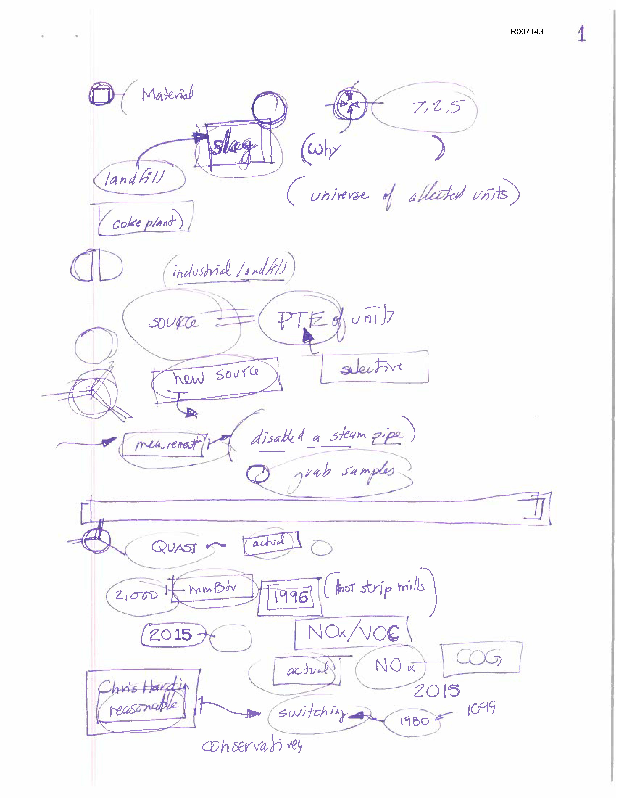 1
Material
7, 2, 5
slag
(why
landfill
(universe of affected units)
(coke plant)
(industrial landfill)
source PTE of units
selective
new source
measurement (disabled a steam pipe)
grab samples
QUASI actual
2,000 mmBtu 1996 (hot strip mills)
2015 NOx/VOC
actual NOx COG
Chris Hardin 2015
reasonable switching 1980
conservatively